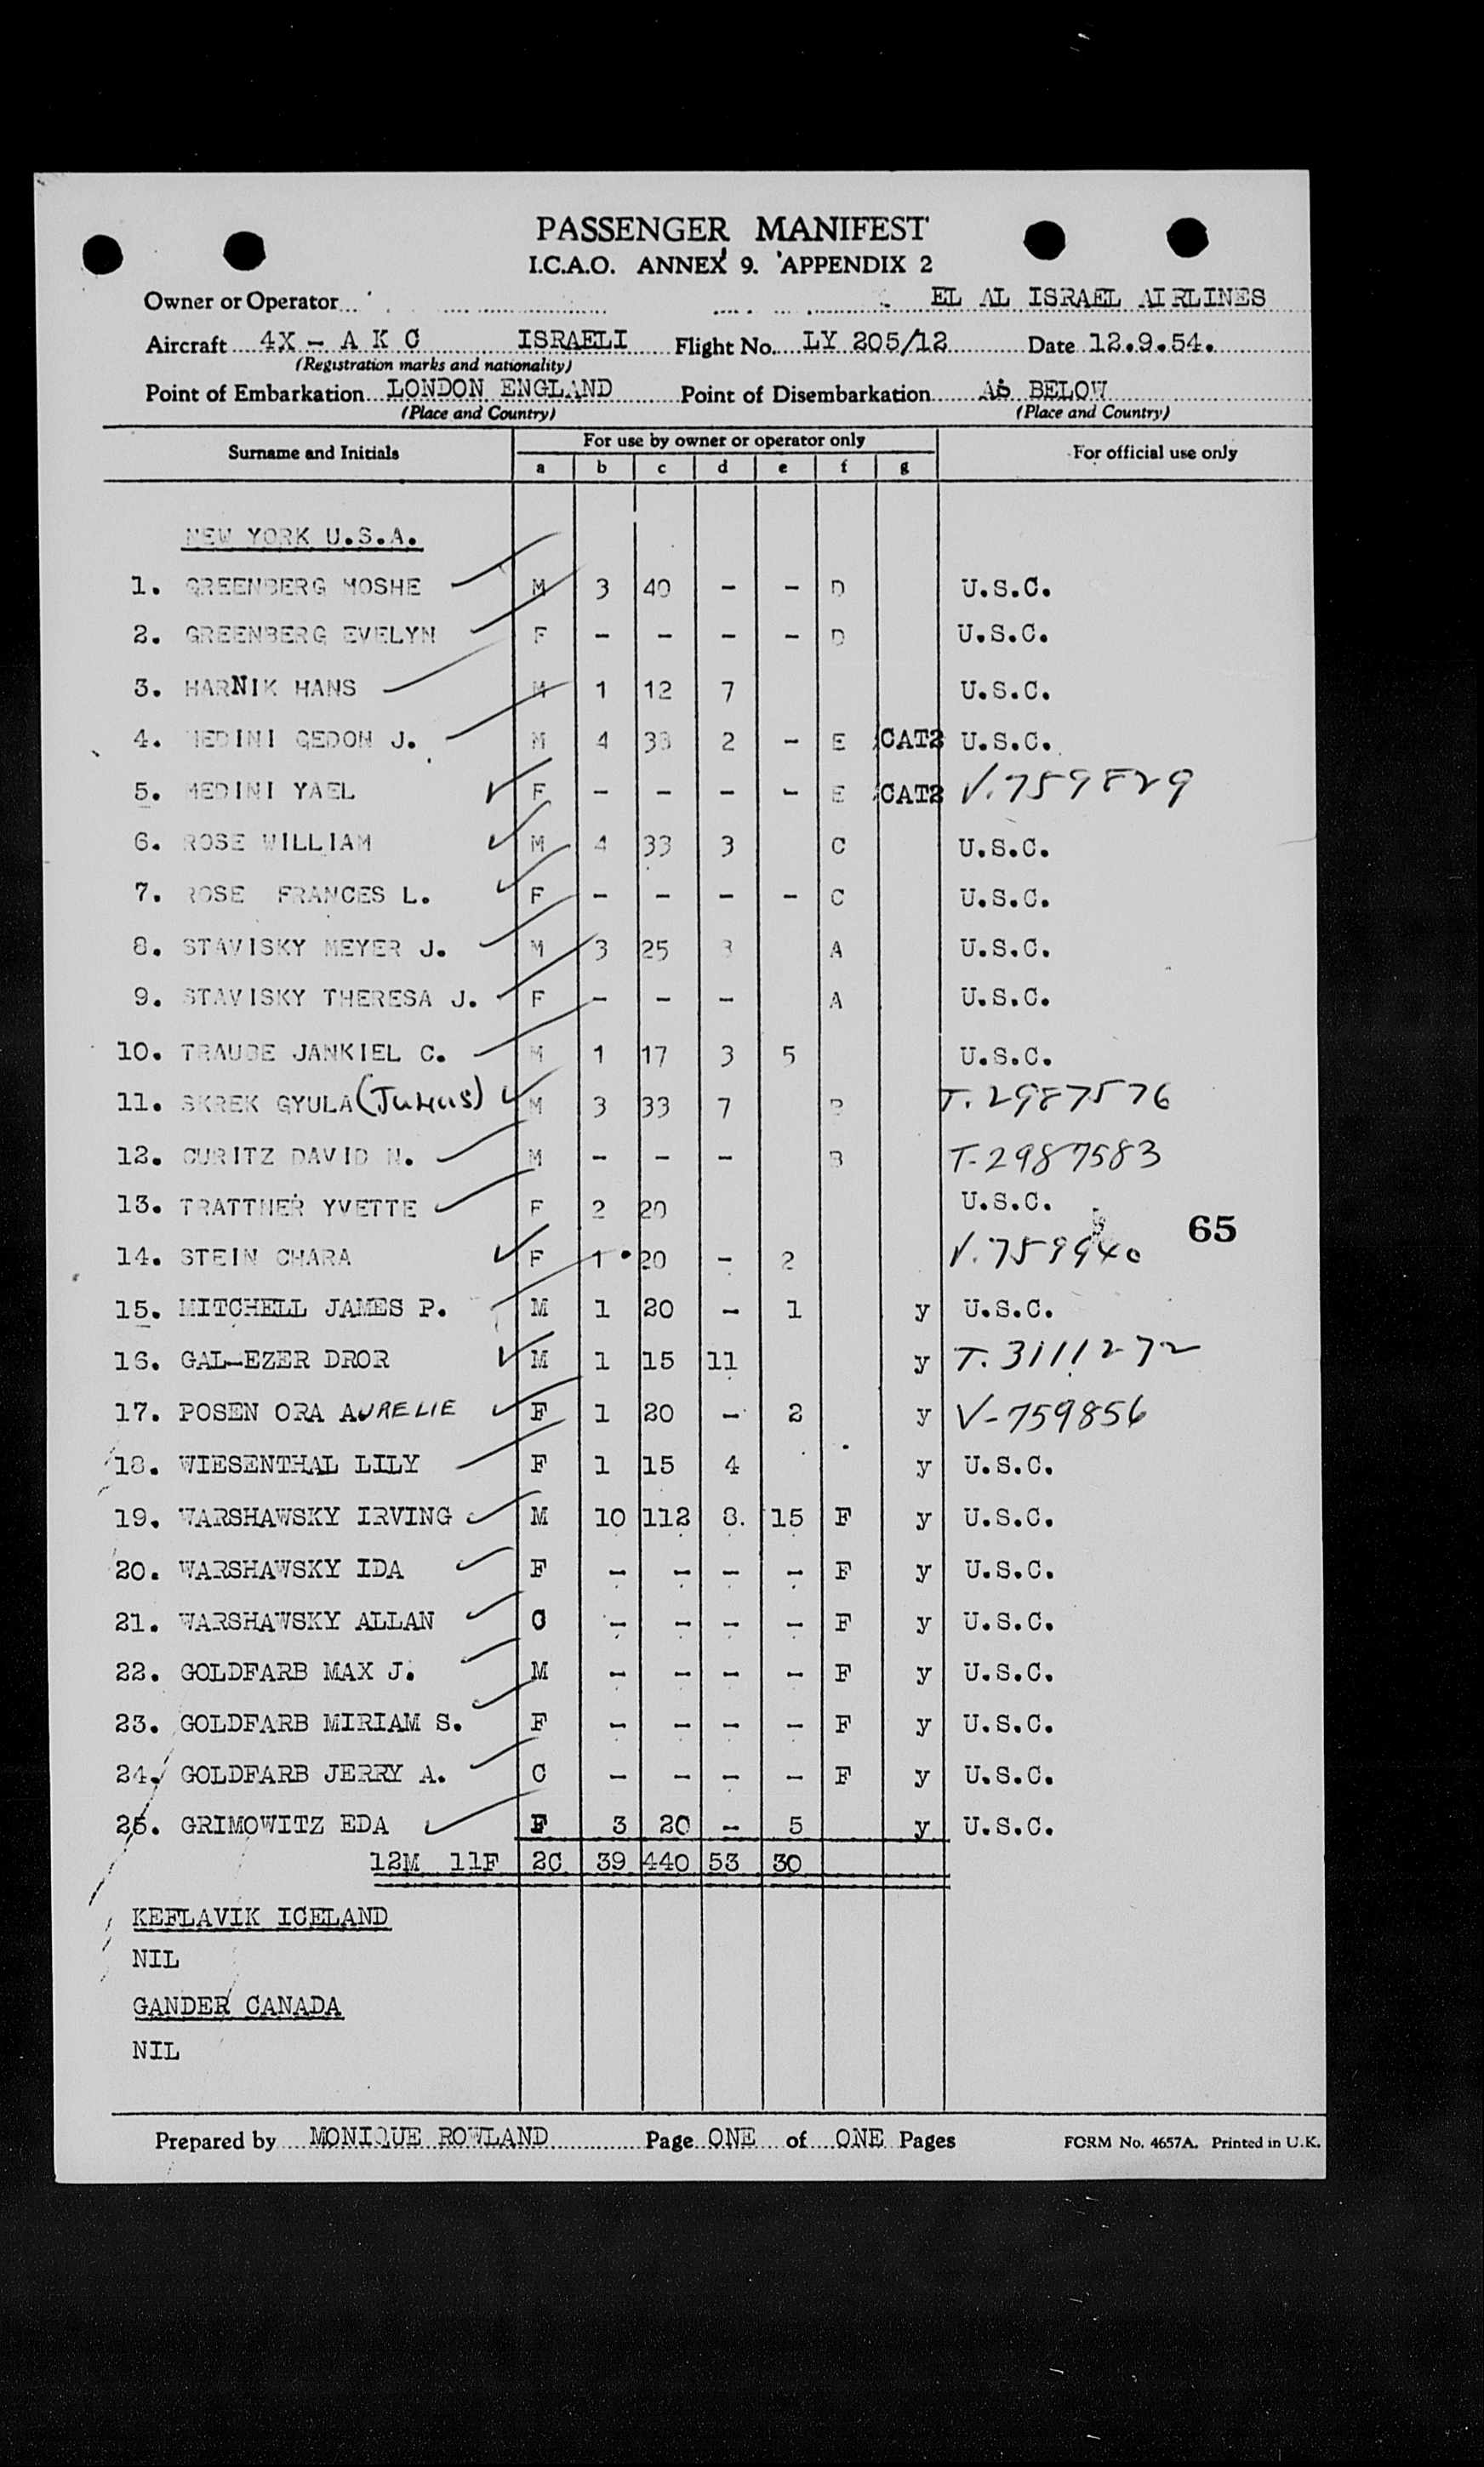 PASSENGER MANIFEST
I.C.A.O. ANNEX 9. APPENDIX 2
Owner or Operator EL AL ISRAEL AIRLINES
Aircraft 4X - A K C ISRAELI Flight No. LY 205/12 Date 12.9.54.
(Registration marks and nationality)
Point of Embarkation LONDON ENGLAND Point of Disembarkation AS BELOW
(Place and Country) (Place and Country)
Surname and Initials For use by owner or operator only For official use only
a b c d e f g
NEW YORK U.S.A.
1. GREENBERG MOSHE M 3 40 - - D U.S.C.
2. GREENBERG EVELYN F - - - - D U.S.C.
3. HARNIK HANS M 1 12 7 U.S.C.
4. MEDINI GEDON J. M 4 33 2 - E CAT2 U.S.C.
5. MEDINI YAEL F - - - - E CAT2 V.759829
6. ROSE WILLIAM M 4 33 3 C U.S.C.
7. ROSE FRANCES L. F - - - - C U.S.C.
8. STAVISKY MEYER J. M 3 25 3 A U.S.C.
9. STAVISKY THERESA J. F - - - A U.S.C.
10. TRAUBE JANKIEL C. M 1 17 3 5 U.S.C.
11. SKREK GYULA (JULIUS) M 3 33 7 B T.2987576
12. CURITZ DAVID N. M - - - B T-2987583
13. TRATTNER YVETTE F 2 20 U.S.C.
65
14. STEIN CHARA F 1 20 - 2 V.759940
15. MITCHELL JAMES P. M 1 20 - 1 y U.S.C.
16. GAL-EZER DROR M 1 15 11 y T.3111272
17. POSEN ORA AURELIE F 1 20 - 2 y V-759856
18. WIESENTHAL LILY F 1 15 4 y U.S.C.
19. WARSHAWSKY IRVING M 10 112 8. 15 F y U.S.C.
20. WARSHAWSKY IDA F - - - - F y U.S.C.
21. WARSHAWSKY ALLAN C - - - - F y U.S.C.
22. GOLDFARB MAX J. M - - - - F y U.S.C.
23. GOLDFARB MIRIAM S. F - - - - F y U.S.C.
24. GOLDFARB JERRY A. C - - - - F y U.S.C.
25. GRIMOWITZ EDA F 3 20 - 5 y U.S.C.
12M 11F 2C 39 440 53 30
KEFLAVIK ICELAND
NIL
GANDER CANADA
NIL
Prepared by MONIQUE ROWLAND Page ONE of ONE Pages FORM No. 4657A. Printed in U.K.